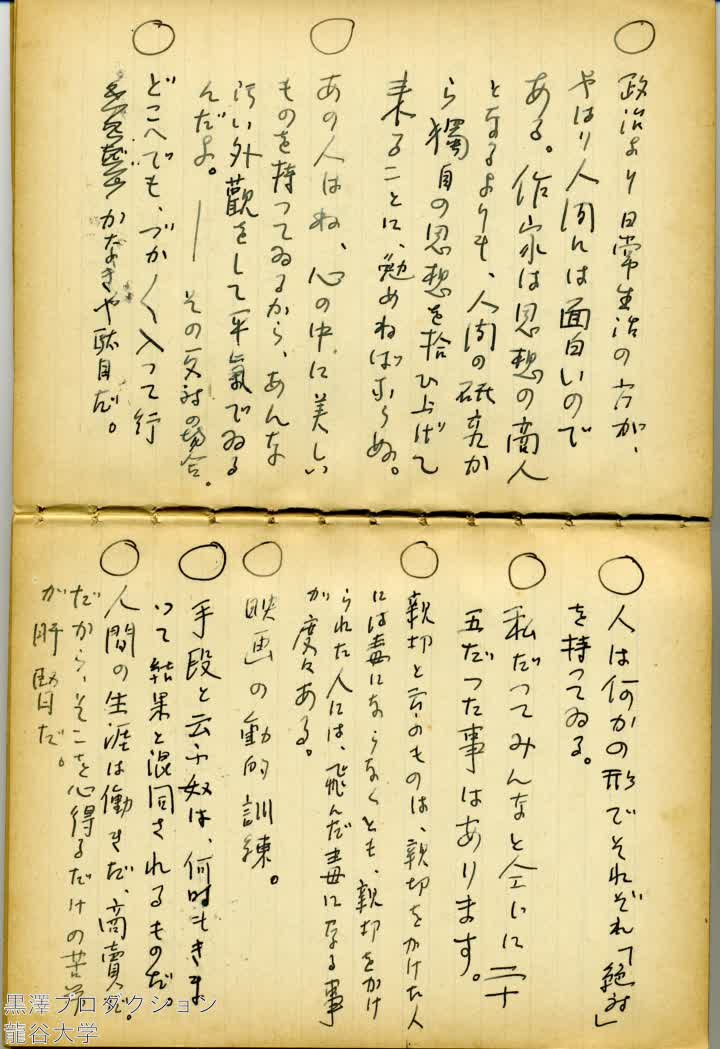 ○ 政治より日常生活の方が、
やはり人間には面白いので
ある。作家は思想の商人
となるよりも、人間の研究か
ら獨自の思想を拾ひ上げて
来ることに、勉めねばならぬ。
○ あの人はね、心の中に美しい
ものを持つてゐるから、あんな
汚い外觀をして平氣でゐる
んだよ。── その反対の場合。
○ どこへでも、づか〱入つて行
かなきや駄目だ。
○ 人は何かの形でそれぞれ「絶対」
を持つてゐる。
○ 私だつてみんなと仝じに二十
五だつた事はあります。
○ 親切と云ふものは、親切をかけた人
には毒にならなくとも、親切をかけ
られた人には、飛んだ毒になる事
が度々ある。
○ 映画の動的訓練。
○ 手段と云ふ奴は、何時もきま
つて結果と混同されるものだ。
○ 人間の生涯は働きだ、商賣だ。
だから、そこを心得るだけの苦労
が肝腎だ。
黒澤プロダクション
龍谷大学